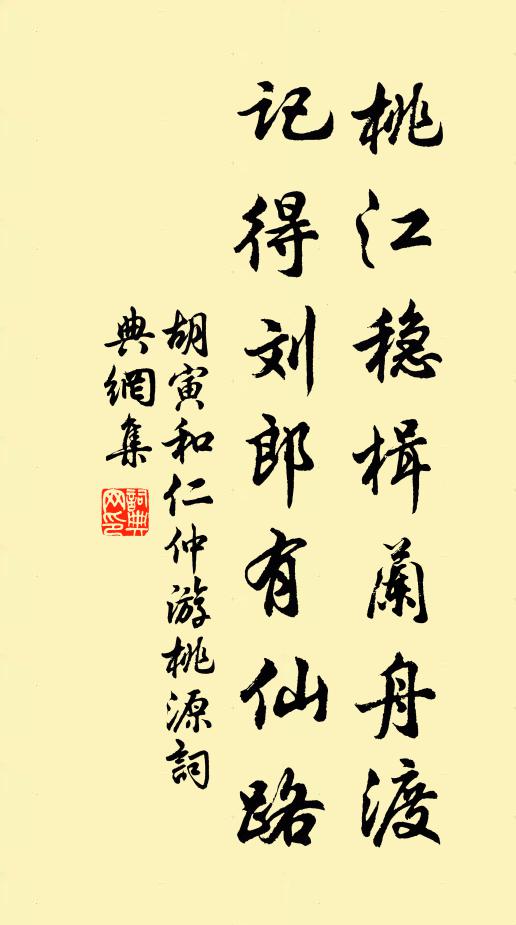 桃江穏楫蘭舟渡
记得刘郎有仙路
胡寅和仁仲游桃源詞
典網集
詞典
网印